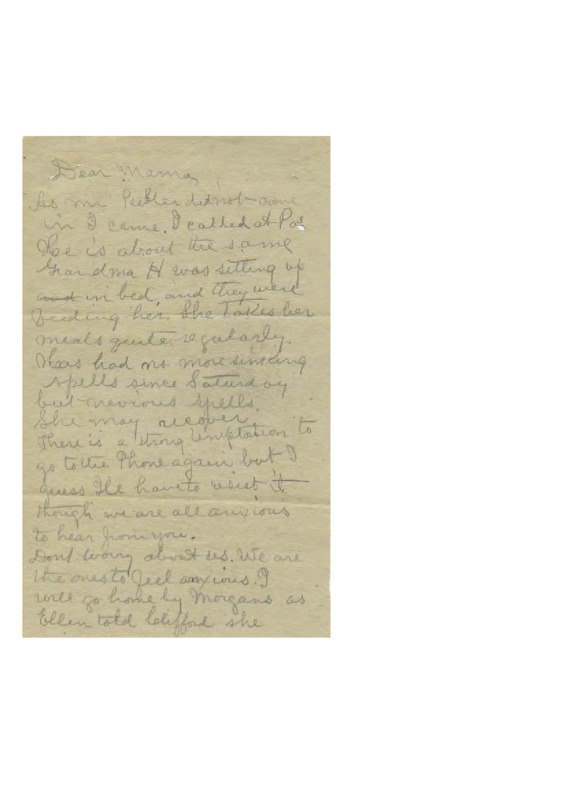 Dear Mama,
As Mr Peebler did not come
in I came. I called at Pa's
He is about the same
Grandma H was sitting up
and in bed, and they were
feeding her. She Takes her
meals quite regularly.
Has had no more sinking
spells since Saturday
but nervious spells.
She may recover
There is a strong temptation to
go to the Phone again but I
guess I'le have to resist it
though we are all anxious
to hear from you.
Dont worry about us. We are
the ones to feel anxious. I
will go home by Morgans as
Ellen told Clifford she